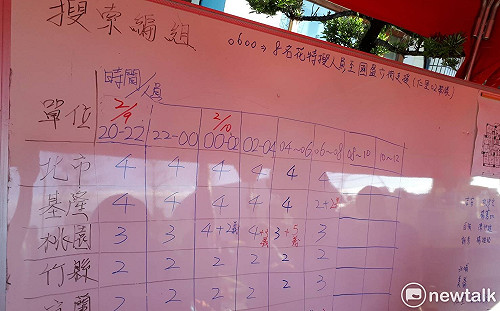 搜索編組
0600⇒8名花特搜人員至國盛
時間/人員
單位
2/9 2/10
20-22 22-00 00-02 02-04 04~06 06~08 08~10 10~12
北市 4 4 4 4 4 4
基隆 4 4 4 4 4
桃園 3 3 4+2 4 3+5 3
竹縣 2 2 2 2 2 2
宜蘭 2 2 2 2 2
newtalk